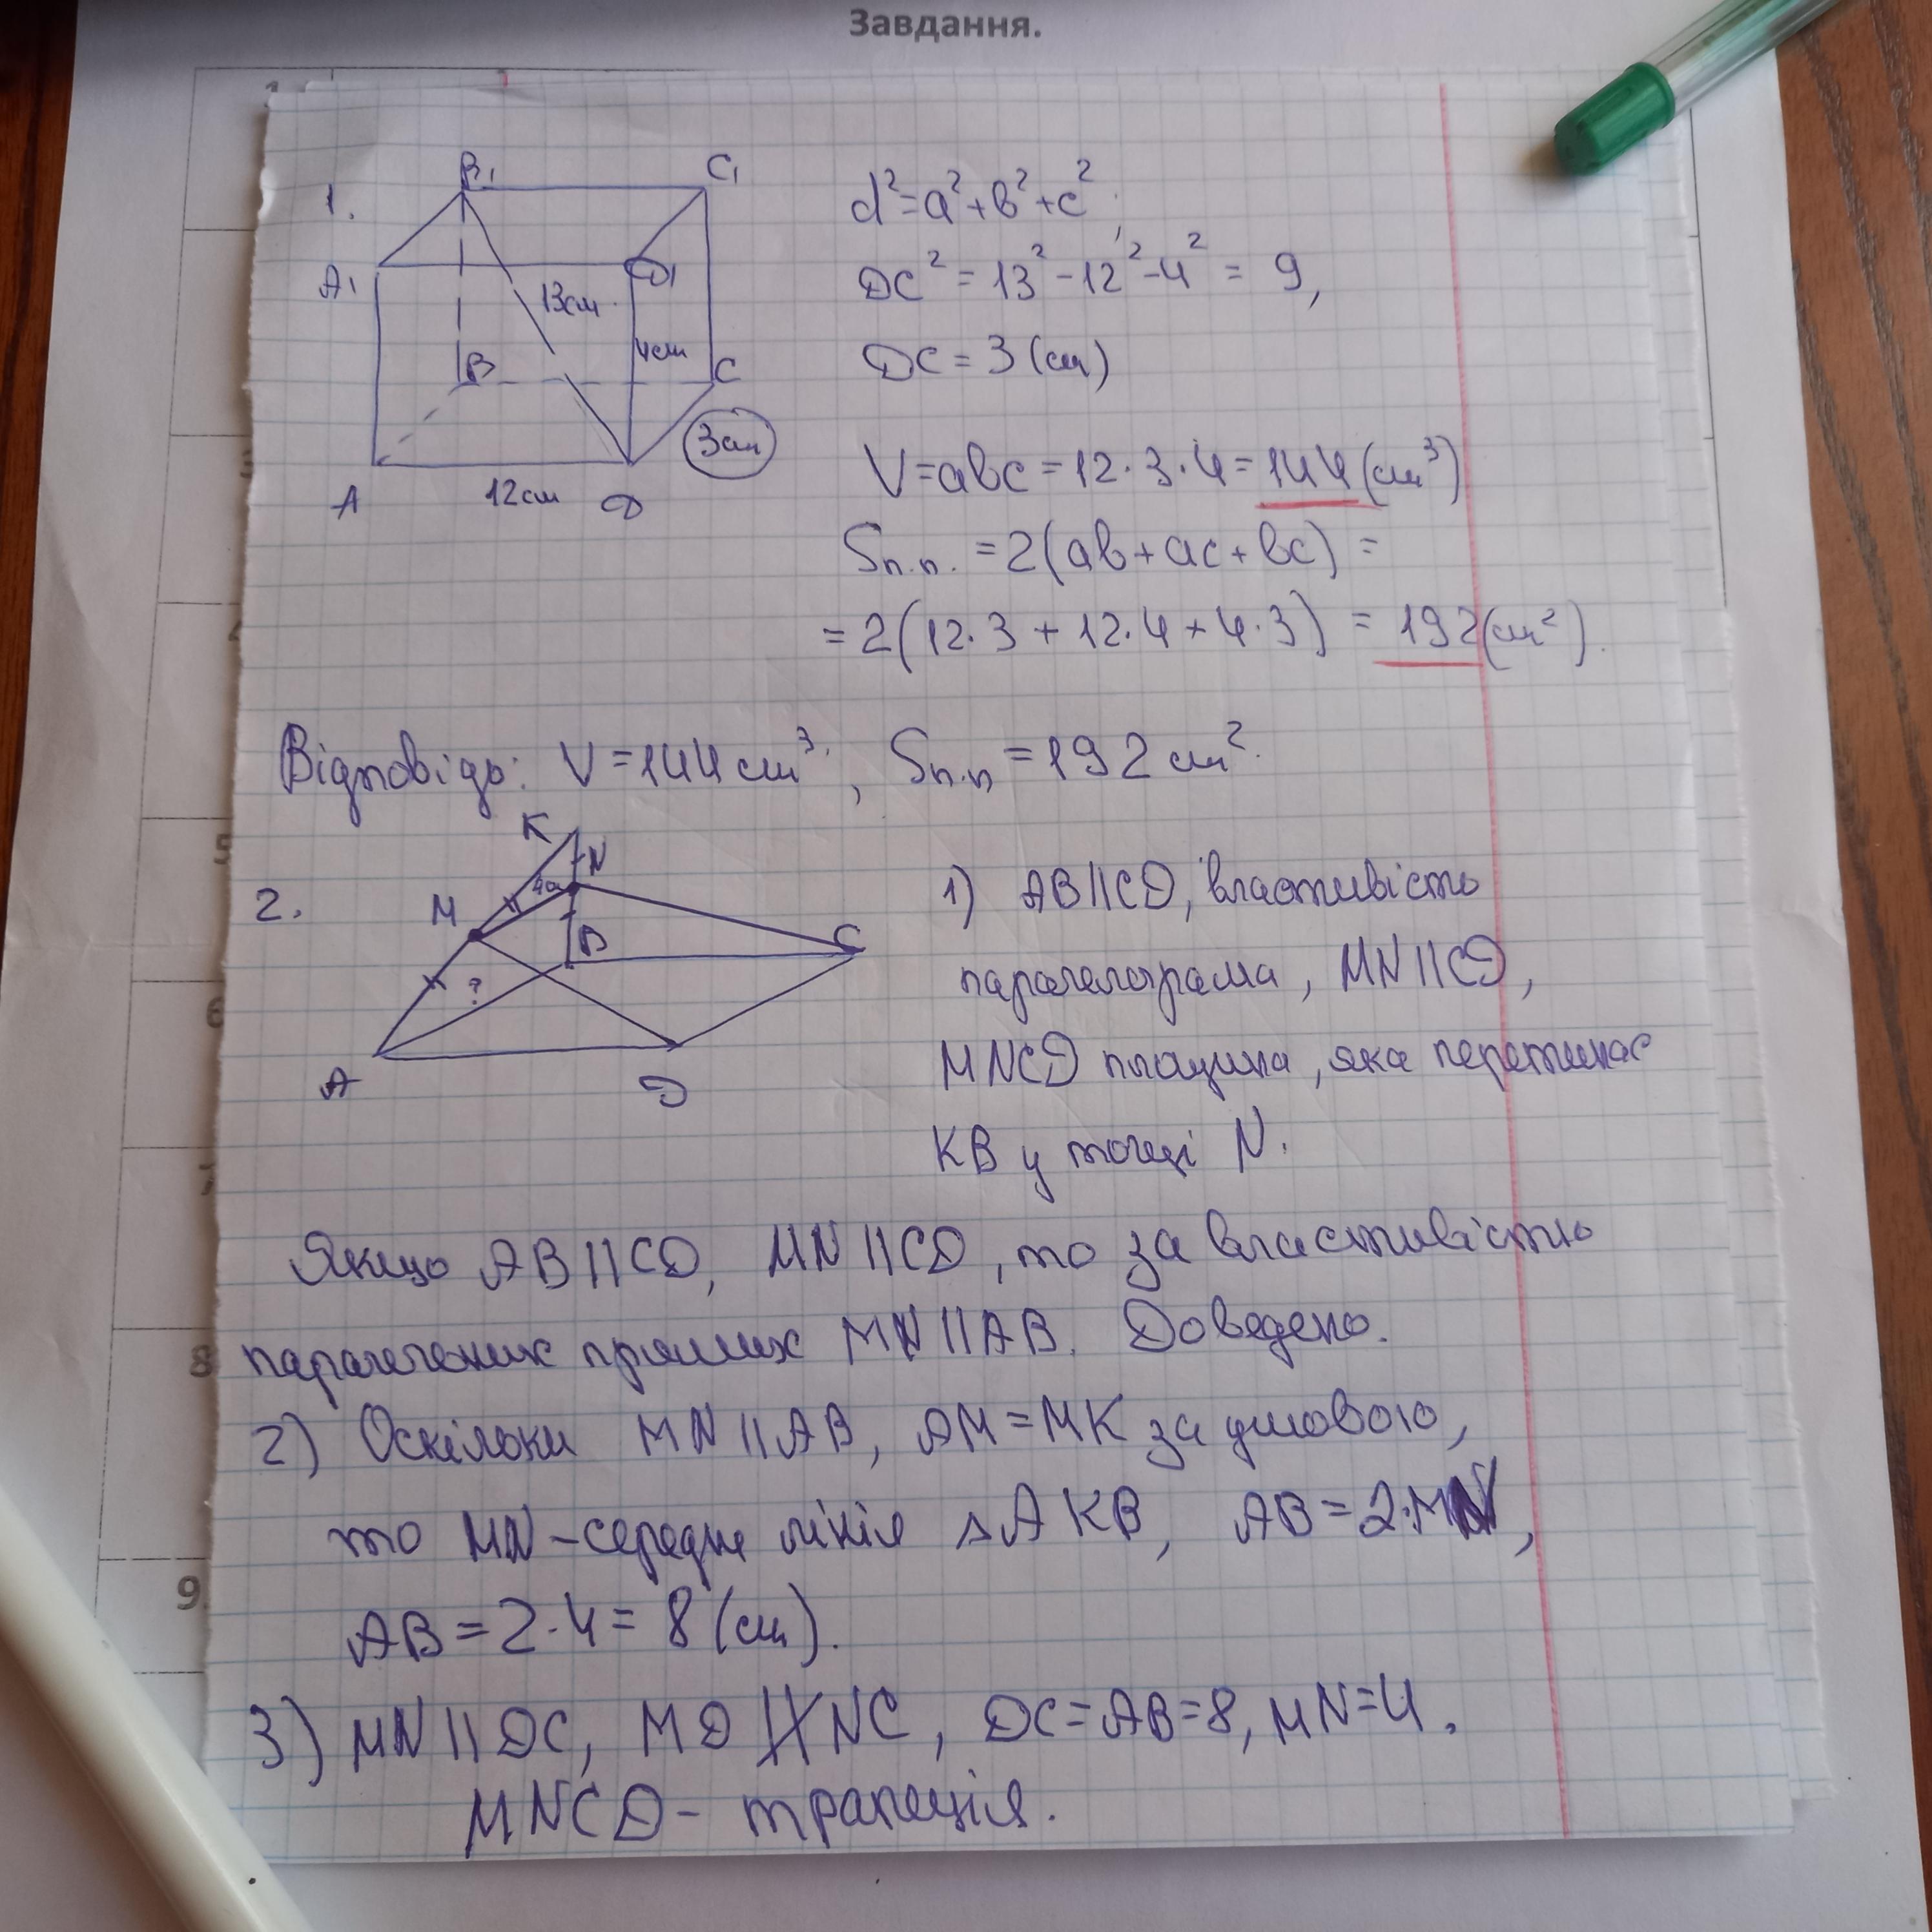 Завдання.
1
1.
B₁
C₁
A₁
D₁
13см
4см
B
C
3см
A
12см
D
d²=a²+b²+c²,
DC²=13²-12²-4²= 9,
DC=3(см)
V=abc=12·3·4=144(см³)
Sп.п.=2(ab+ac+bc)=
=2(12·3+12·4+4·3)=192(см²).
Відповідь: V=144см³, Sп.п=192см².
2.
K
N
M
B
C
?
A
D
1) AB||CD, властивість
паралелограма, MN||CD,
MNCD площина, яка перетинає
KB у точці N.
Якщо AB||CD, MN||CD, то за властивістю
паралельних прямих MN||AB. Доведено.
2) Оскільки MN||AB, AM=MK за умовою,
то MN-середня лінія △AKB, AB=2·MN,
AB=2·4=8(см).
3) MN||DC, MD∦NC, DC=AB=8, MN=4.
MNCD- трапеція.
5
6
7
8
9